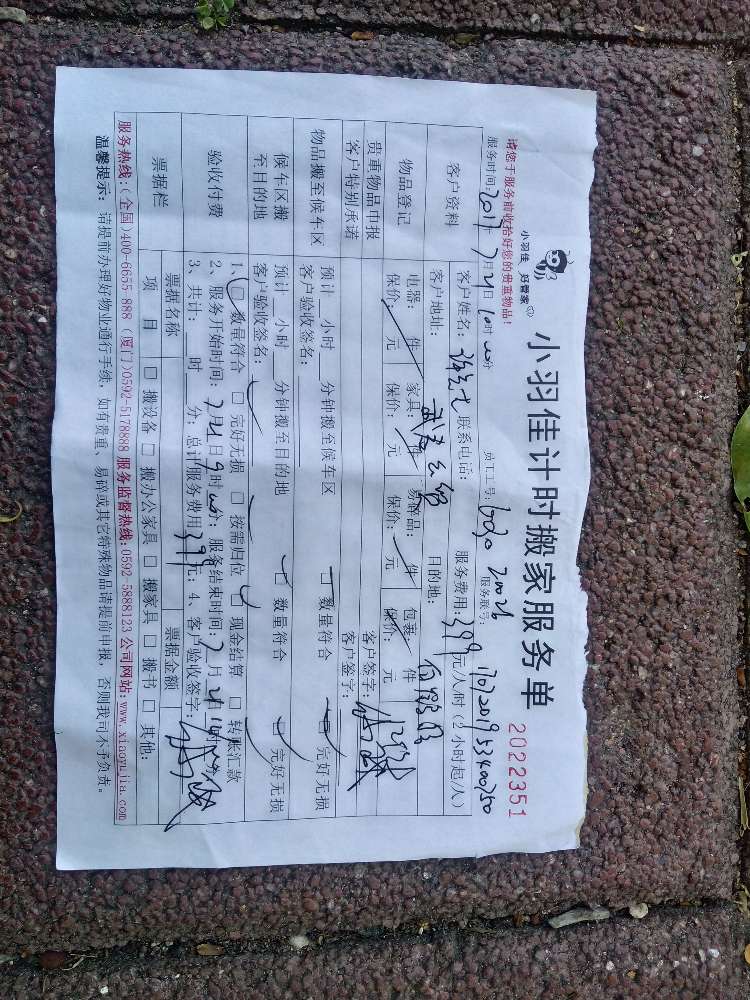 小羽佳 好管家
小羽佳计时搬家服务单
2022351
请您于服务前收拾好您的贵重物品！
服务时间: 2019年7月21日10时00分 员工工号: 服务账号:
客户资料 客户姓名: 联系电话: 服务费用: 399元/人/时(2小时起/人)
客户地址: 目的地:
物品登记 电器: 件 家具: 件 易碎品: 件 包裹: 件
保价: 元 保价: 元 保价: 元 保价: 元
贵重物品申报 客户签字:
客户特别承诺 客户签字:
物品搬至候车区 预计__小时__分钟搬至候车区 □ 数量符合 □ 完好无损
客户验收签名:
候车区搬至目的地 预计__小时__分钟搬至目的地 □ 数量符合 □ 完好无损
客户验收签名:
验收付费 1、□ 数量符合 □ 完好无损 □ 按需归位 □ 现金结算 □ 转账汇款
2、服务开始时间: 7月21日9时00分; 服务结束时间: 7月21日
3、共计: __时__分; 总计服务费用399元; 4、客户验收签字:
票据栏 票据名称 票据金额
项 目 □ 搬设备 □ 搬办公家具 □ 搬家具 □ 搬书 □ 其他:
服务热线:(全国)400-6655 888 (厦门)0592-5178888 服务监督热线:0592-5888123 公司网站:www.xiaoyujia.com
温馨提示: 请提前办理好物业通行手续, 如有贵重、易碎或其它特殊物品请提前申报, 否则我司不予负责。